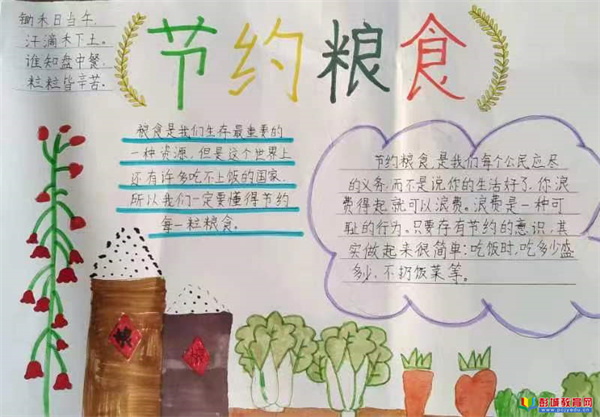 锄禾日当午,
汗滴禾下土。
谁知盘中餐,
粒粒皆辛苦。
节约粮食
粮食是我们生存最重要的
一种资源,但是这个世界上
还有许多吃不上饭的国家,
所以我们一定要懂得节约
每一粒粮食。
节约粮食,是我们每个公民应尽
的义务,而不是说你的生活好了,你浪
费得起,就可以浪费。浪费是一种可
耻的行为。只要存有节约的意识,其
实做起来很简单:吃饭时,吃多少盛
多少,不扔饭菜等。
彭城教育网